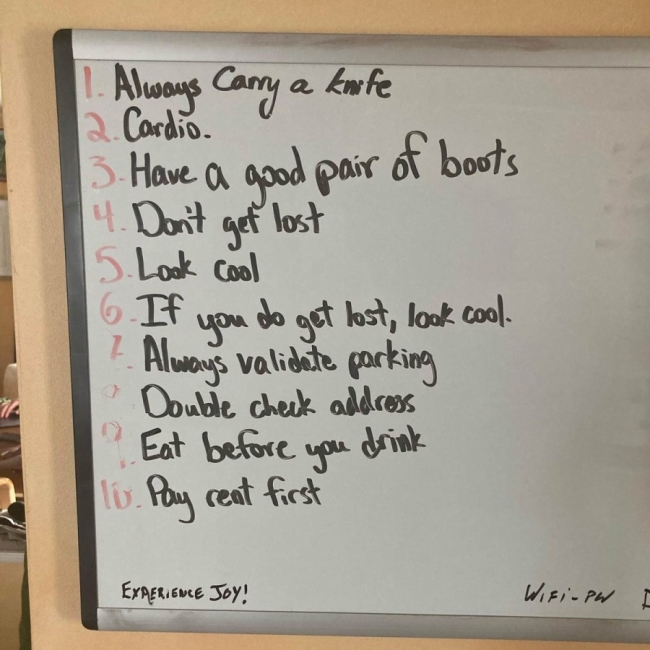 1. Always Carry a knife
2. Cardio.
3. Have a good pair of boots
4. Don't get lost
5. Look cool
6. If you do get lost, look cool.
7. Always validate parking
Double check address
9. Eat before you drink
10. Pay rent first
EXPERIENCE JOY! WIFI-PW